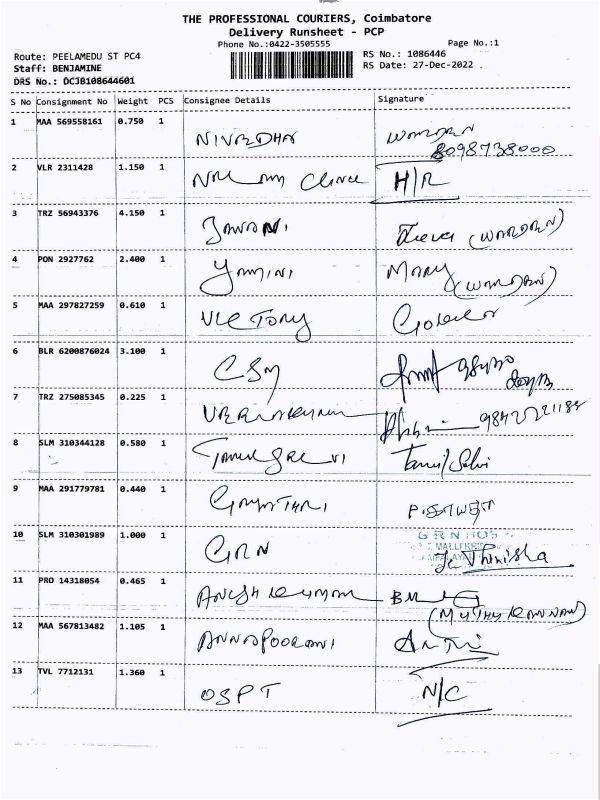 THE PROFESSIONAL COURIERS, Coimbatore
Delivery Runsheet - PCP
Phone No.:0422-3505555
Page No.:1
Route: PEELAMEDU ST PC4
RS No.: 1086446
Staff: BENJAMINE
RS Date: 27-Dec-2022
DRS No.: DCJB108644601
S No Consignment No Weight PCS Consignee Details Signature
1 MAA 569558161 0.750 1 NIVEDHA WARDEN
8098738000
2 VLR 2311428 1.150 1 H/R
3 TRZ 56943376 4.150 1 (WARDEN)
4 PON 2927762 2.400 1 YAMINI MARY
(WARDEN)
5 MAA 297827259 0.610 1 VICTORY
6 BLR 6200876024 3.100 1 CSM
7 TRZ 275085345 0.225 1
8 SLM 310344128 0.580 1 TAMILSELVI Tamil Selvi
9 MAA 291779781 0.440 1 GAYATHRI
10 SLM 310301989 1.000 1 GRN
Thinisha
11 PRO 14318054 0.465 1 ANISH KUMAR
(MUTHU KANNAN)
12 MAA 567813482 1.105 1 ANNAPOORANI
13 TVL 7712131 1.360 1 OSPT N/C